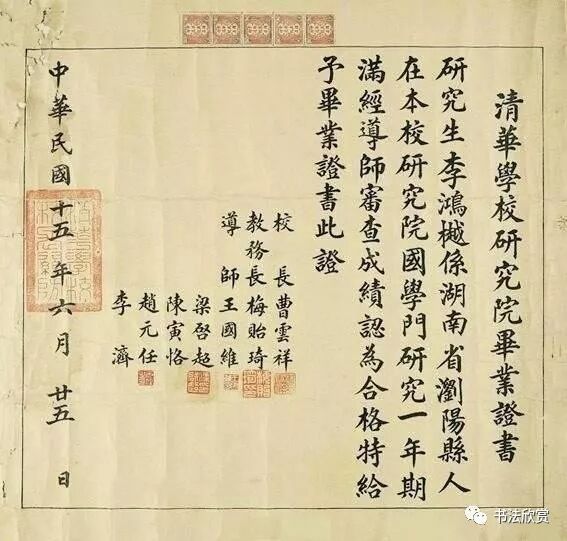 清華學校研究院畢業證書
研究生李鴻樾係湖南省瀏陽縣人
在本校研究院國學門研究一年期
滿經導師審查成績認為合格特給
予畢業證書此證
校長曹雲祥
教務長梅貽琦
導師王國維
梁啓超
陳寅恪
趙元任
李濟
中華民國十五年六月廿五日
书法欣赏